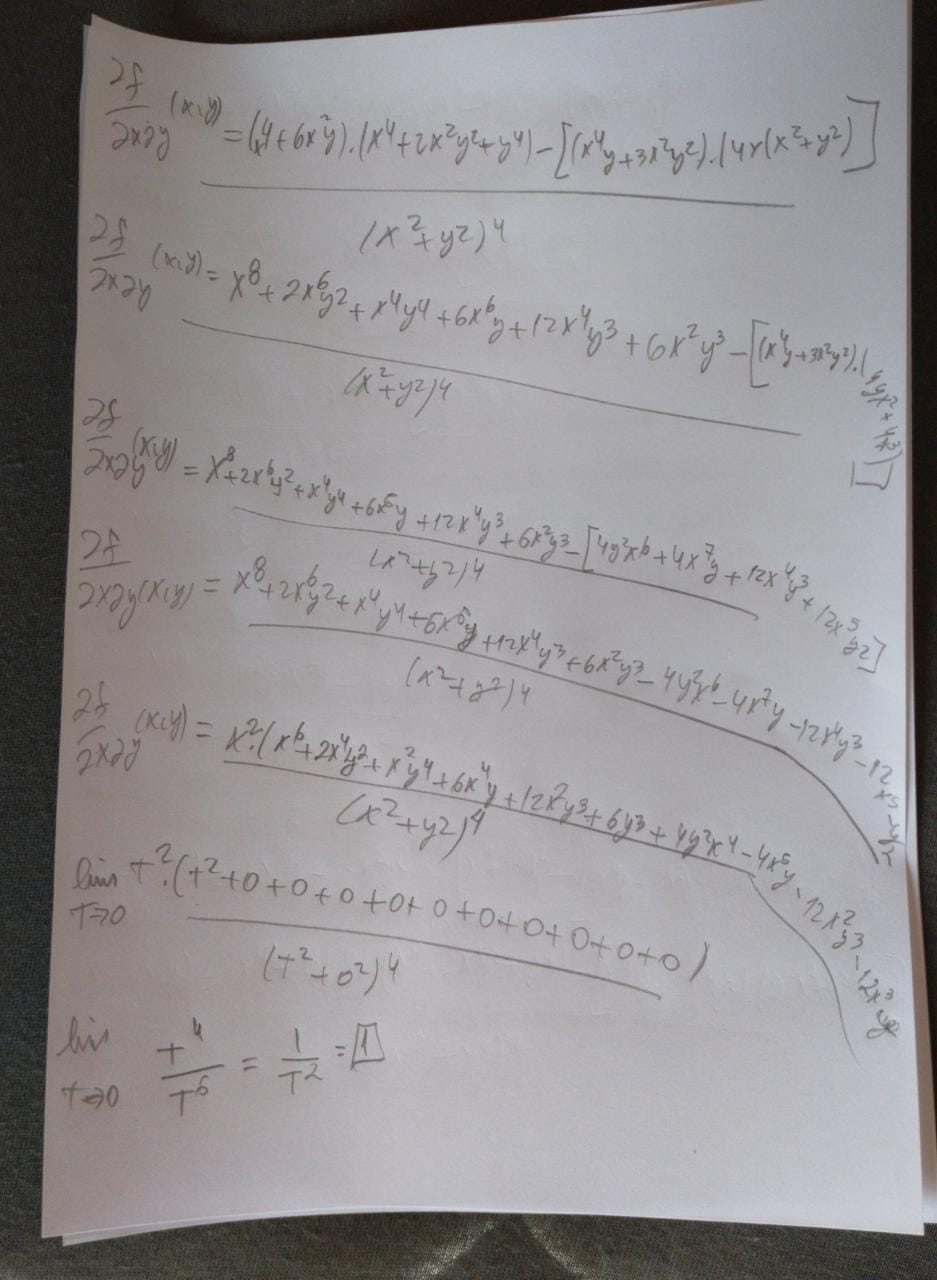 ∂f/∂x∂y (x,y) = (x⁴+6x²y).(x⁴+2x²y²+y⁴) - [(x⁴y+3x²y²).(4x(x²+y²)]
(x²+y²)⁴
∂f/∂x∂y (x,y) = x⁸+2x⁶y²+x⁴y⁴+6x⁶y+12x⁴y³+6x²y³-[(x⁴y+3x²y²).(4yx²+4x³)]
(x²+y²)⁴
∂f/∂x∂y (x,y) = x⁸+2x⁶y²+x⁴y⁴+6x⁶y+12x⁴y³+6x²y³-[4y²x⁶+4x⁷y+12x⁴y³+12x⁵y²]
(x²+y²)⁴
∂f/∂x∂y (x,y) = x⁸+2x⁶y²+x⁴y⁴+6x⁶y+12x⁴y³+6x²y³-4y²x⁶-4x⁷y-12x⁴y³-12x⁵y²
(x²+y²)⁴
∂f/∂x∂y (x,y) = x².(x⁶+2x⁴y²+x²y⁴+6x⁴y+12x²y³+6y³+4y²x⁴-4x⁵y-12x²y³-12x³y²
(x²+y²)⁴
lim T→0 T².(T²+0+0+0+0+0+0+0+0+0+0)
(T²+0²)⁴
lim T→0 T⁴/T⁶ = 1/T² = 1